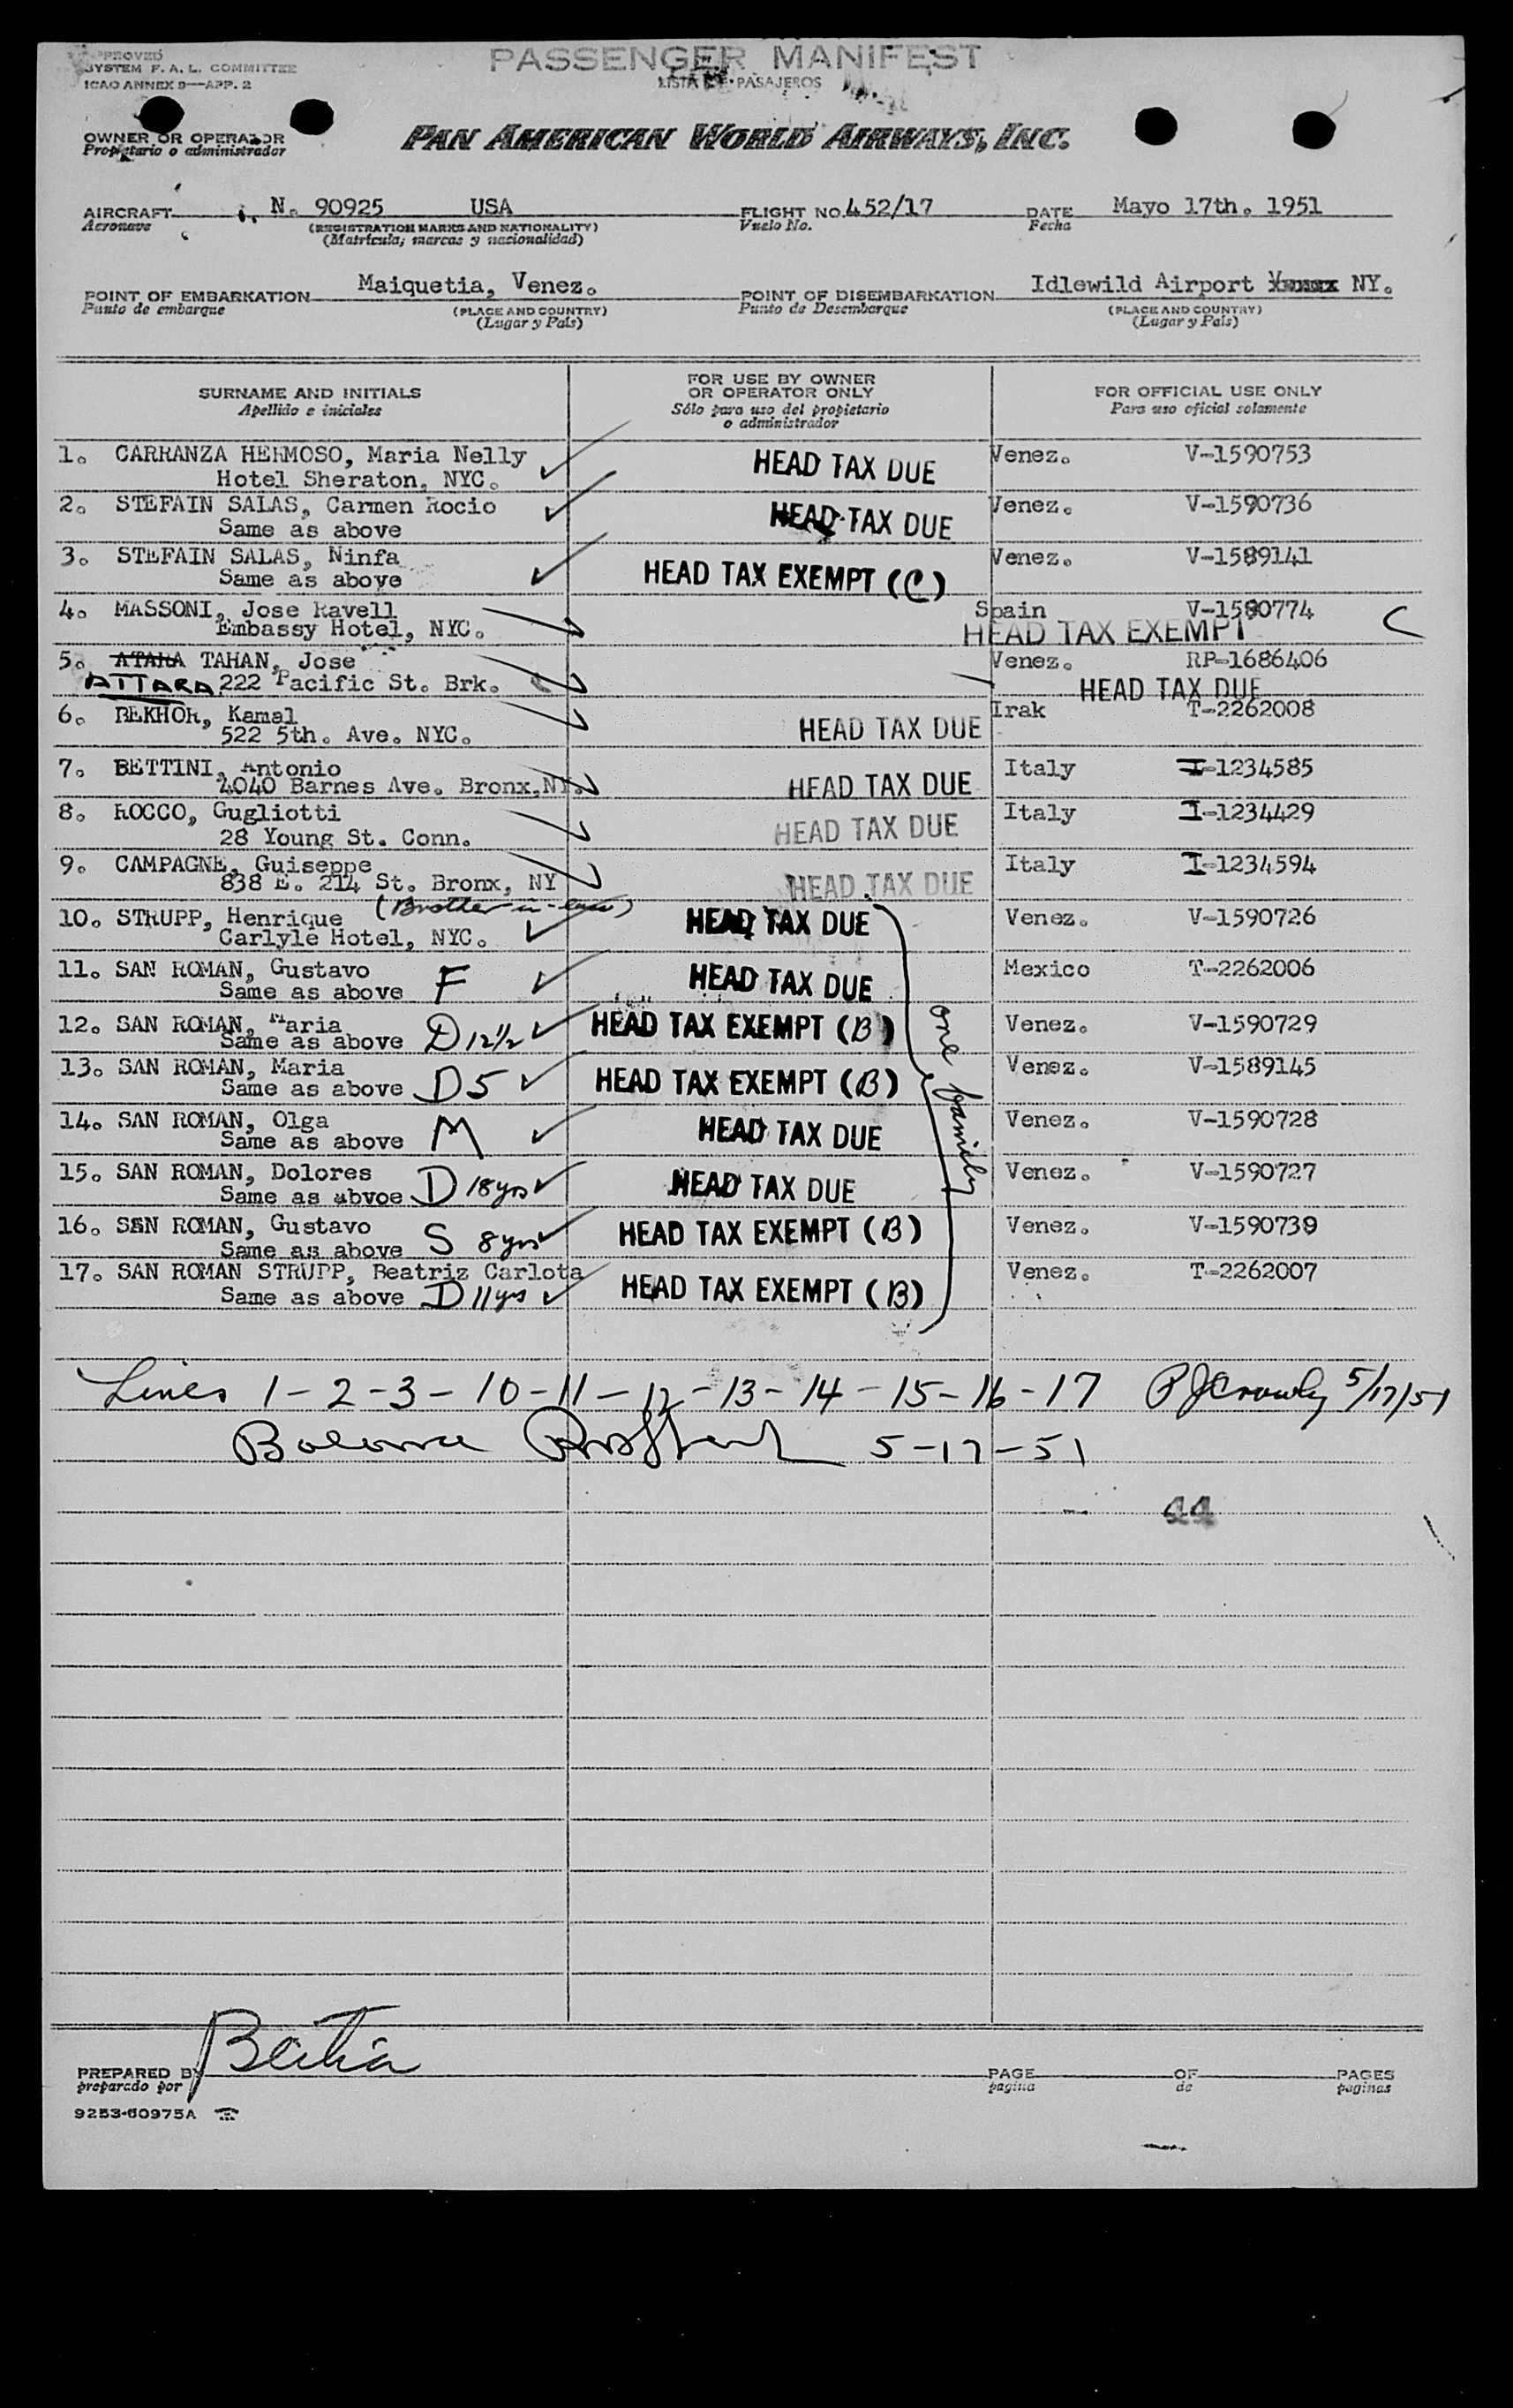 APPROVED
SYSTEM F. A. L. COMMITTEE
ICAO ANNEX 9—APP. 2
PASSENGER MANIFEST
LISTA DE PASAJEROS
OWNER OR OPERATOR
Propietario o administrador
PAN AMERICAN WORLD AIRWAYS, INC.
AIRCRAFT N. 90925 USA FLIGHT NO. 452/17 DATE Mayo 17th. 1951
Aeronave (REGISTRATION MARKS AND NATIONALITY) Vuelo No. Fecha
(Matricula, marcas y nacionalidad)
POINT OF EMBARKATION Maiquetia, Venez. POINT OF DISEMBARKATION Idlewild Airport NY.
Punto de embarque (PLACE AND COUNTRY) Punto de Desembarque (PLACE AND COUNTRY)
(Lugar y País) (Lugar y País)
SURNAME AND INITIALS
Apellido e iniciales
FOR USE BY OWNER
OR OPERATOR ONLY
Sólo para uso del propietario
o administrador
FOR OFFICIAL USE ONLY
Para uso oficial solamente
1. CARRANZA HERMOSO, Maria Nelly HEAD TAX DUE Venez. V-1590753
Hotel Sheraton, NYC.
2. STEFAIN SALAS, Carmen Rocio HEAD TAX DUE Venez. V-1590736
Same as above
3. STEFAIN SALAS, Ninfa HEAD TAX EXEMPT (C) Venez. V-1589141
Same as above
4. MASSONI, Jose Ravell Spain V-1580774
Embassy Hotel, NYC. HEAD TAX EXEMPT C
5. ATARA TAHAN, Jose Venez. RP-1686406
ATTARA 222 Pacific St. Brk. HEAD TAX DUE
6. BEKHOR, Kamal HEAD TAX DUE Irak T-2262008
522 5th. Ave. NYC.
7. BETTINI, Antonio HEAD TAX DUE Italy I-1234585
4040 Barnes Ave. Bronx, NY.
8. ROCCO, Gugliotti HEAD TAX DUE Italy I-1234429
28 Young St. Conn.
9. CAMPAGNE, Guiseppe HEAD TAX DUE Italy I-1234594
838 E. 214 St. Bronx, NY
(Brother-in-law)
10. STRUPP, Henrique HEAD TAX DUE Venez. V-1590726
Carlyle Hotel, NYC.
11. SAN ROMAN, Gustavo HEAD TAX DUE Mexico T-2262006
Same as above F
12. SAN ROMAN, Maria HEAD TAX EXEMPT (B) Venez. V-1590729
Same as above D 12½
13. SAN ROMAN, Maria HEAD TAX EXEMPT (B) Venez. V-1589145
Same as above D 5
one family
14. SAN ROMAN, Olga HEAD TAX DUE Venez. V-1590728
Same as above M
15. SAN ROMAN, Dolores HEAD TAX DUE Venez. V-1590727
Same as abvoe D 18 yrs
16. SAN ROMAN, Gustavo HEAD TAX EXEMPT (B) Venez. V-1590730
Same as above S 8 yrs
17. SAN ROMAN STRUPP, Beatriz Carlota HEAD TAX EXEMPT (B) Venez. T-2262007
Same as above D 11 yrs
Lines 1-2-3-10-11-12-13-14-15-16-17 P J Crowly 5/17/51
Balance 5-17-51
44
PREPARED BY PAGE OF PAGES
preparado por pagina de paginas
9253-60975A